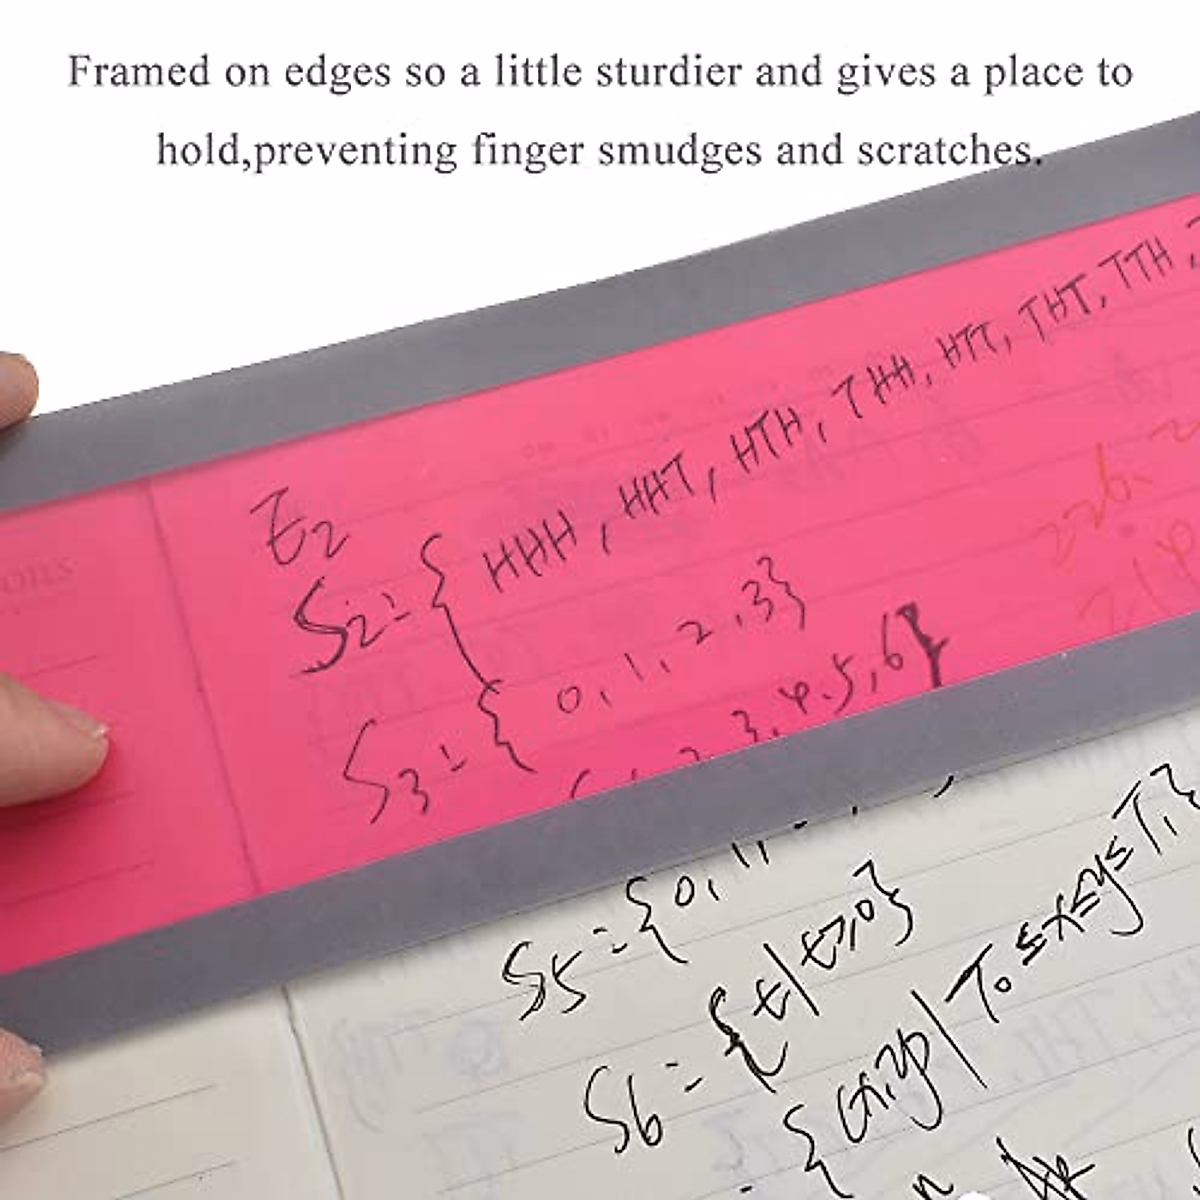 Framed on edges so a little sturdier and gives a place to
hold,preventing finger smudges and scratches.
E2
S2 = { HHH, HHT, HTH, THH, HTT, THT, TTH,
S3 = { 0, 1, 2, 3}
3, 4, 5, 6}
S5 = {0, 1,
S6 = {t | t≥0}
= {(x,y) | T0 ≤ x ≤ y ≤ T1}